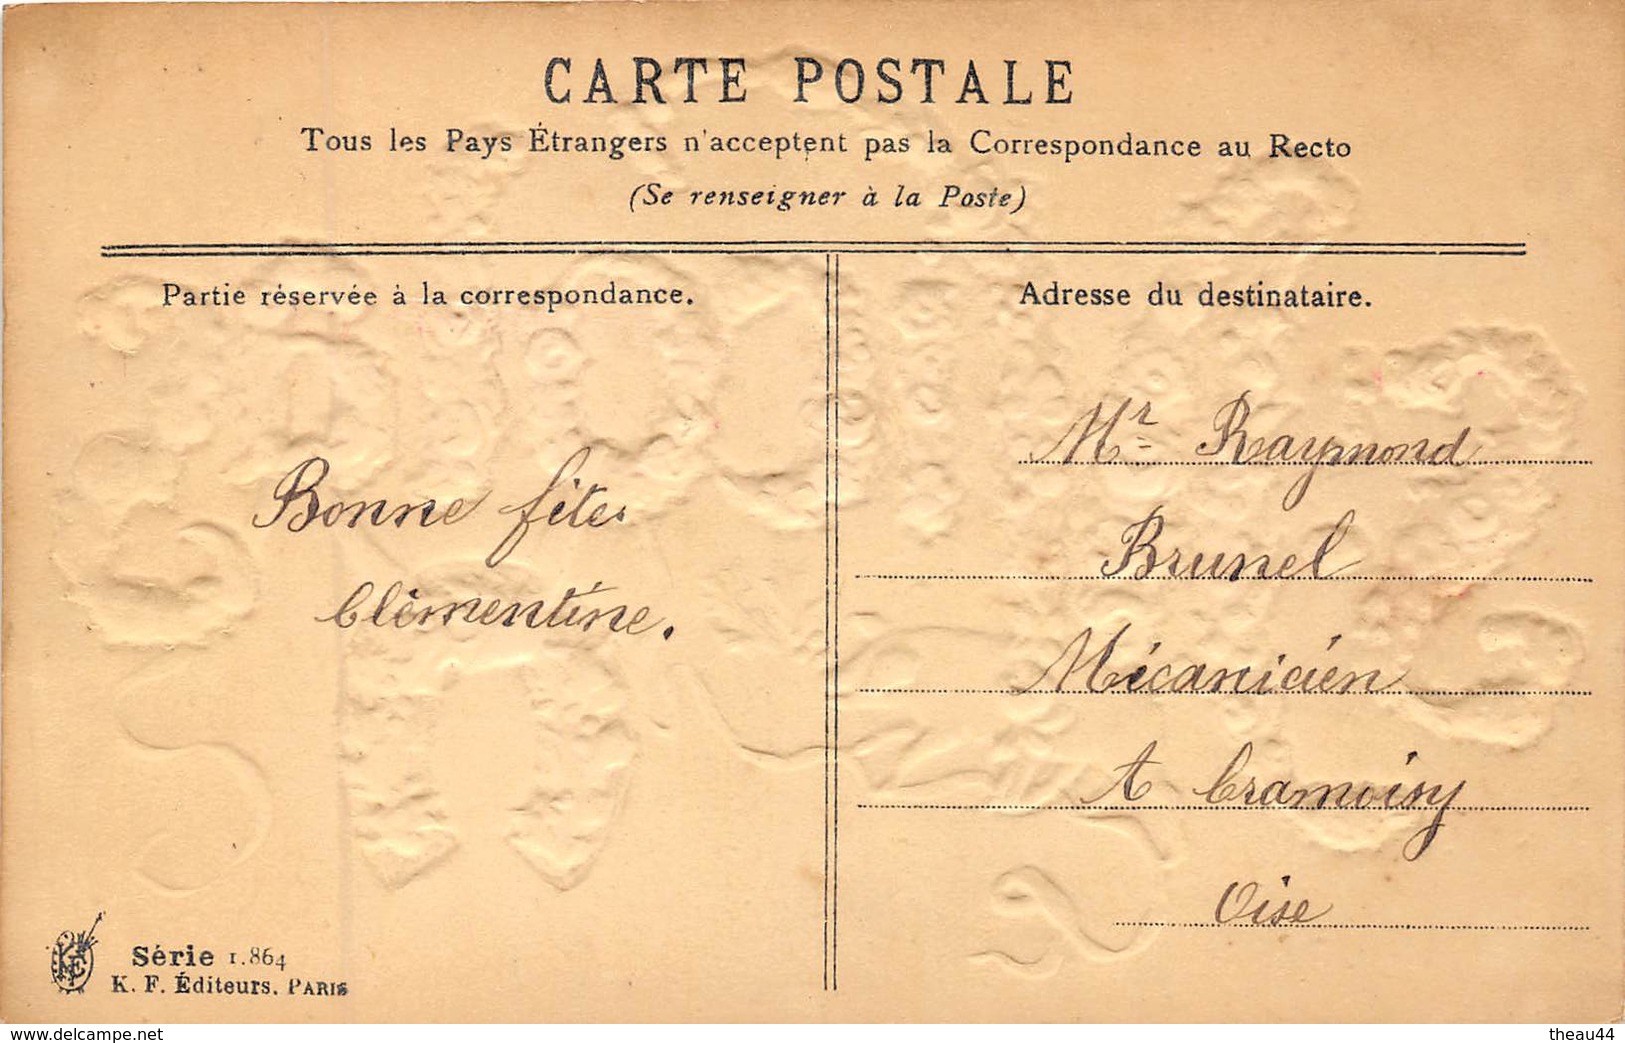 CARTE POSTALE
Tous les Pays Étrangers n'acceptent pas la Correspondance au Recto
(Se renseigner à la Poste)
Partie réservée à la correspondance.
Bonne fête.
Clèmentine.
Adresse du destinataire.
Mr Raymond
Brunel
Mécanicien
A Cramoisy
Oise
KF
Série 1.864
K. F. Éditeurs. PARIS
www.delcampe.net
theau44